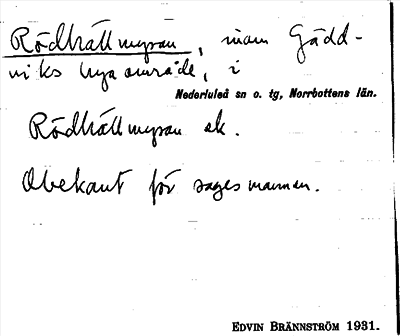 Rödhällmyran, inom Gädd-
viks byaområde, i
Nederluleå sn o. tg, Norrbottens län.
Rödhällmyran ek.
Obekant för sagesmannen.
EDVIN BRÄNNSTRÖM 1931.